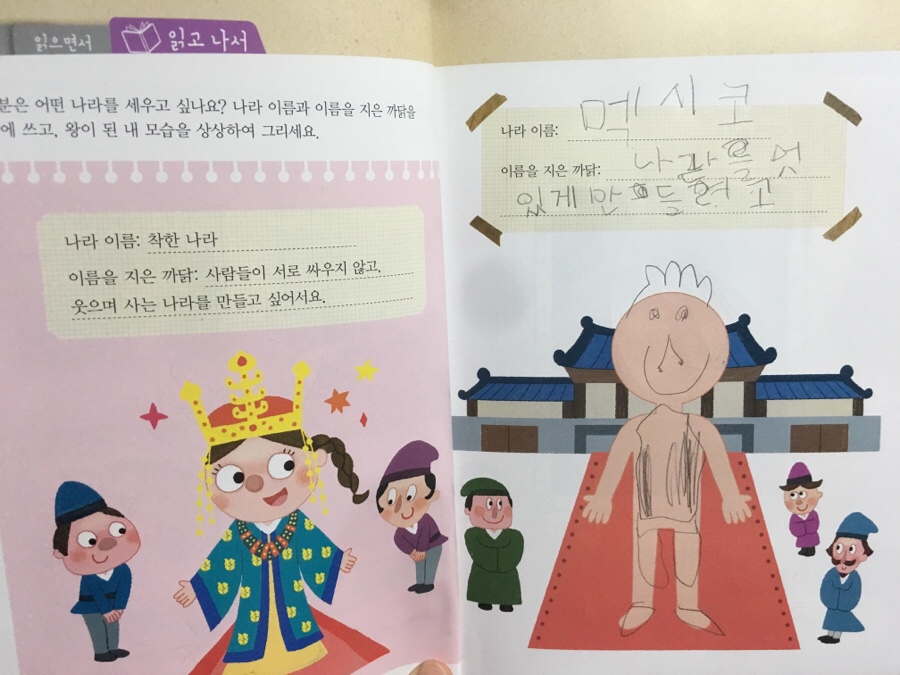 읽으면서
읽고 나서
분은 어떤 나라를 세우고 싶나요? 나라 이름과 이름을 지은 까닭을
에 쓰고, 왕이 된 내 모습을 상상하여 그리세요.
나라 이름: 착한 나라
이름을 지은 까닭: 사람들이 서로 싸우지 않고,
웃으며 사는 나라를 만들고 싶어서요.
나라 이름: 멕시코
이름을 지은 까닭: 나라를 멋
있게 만들려고